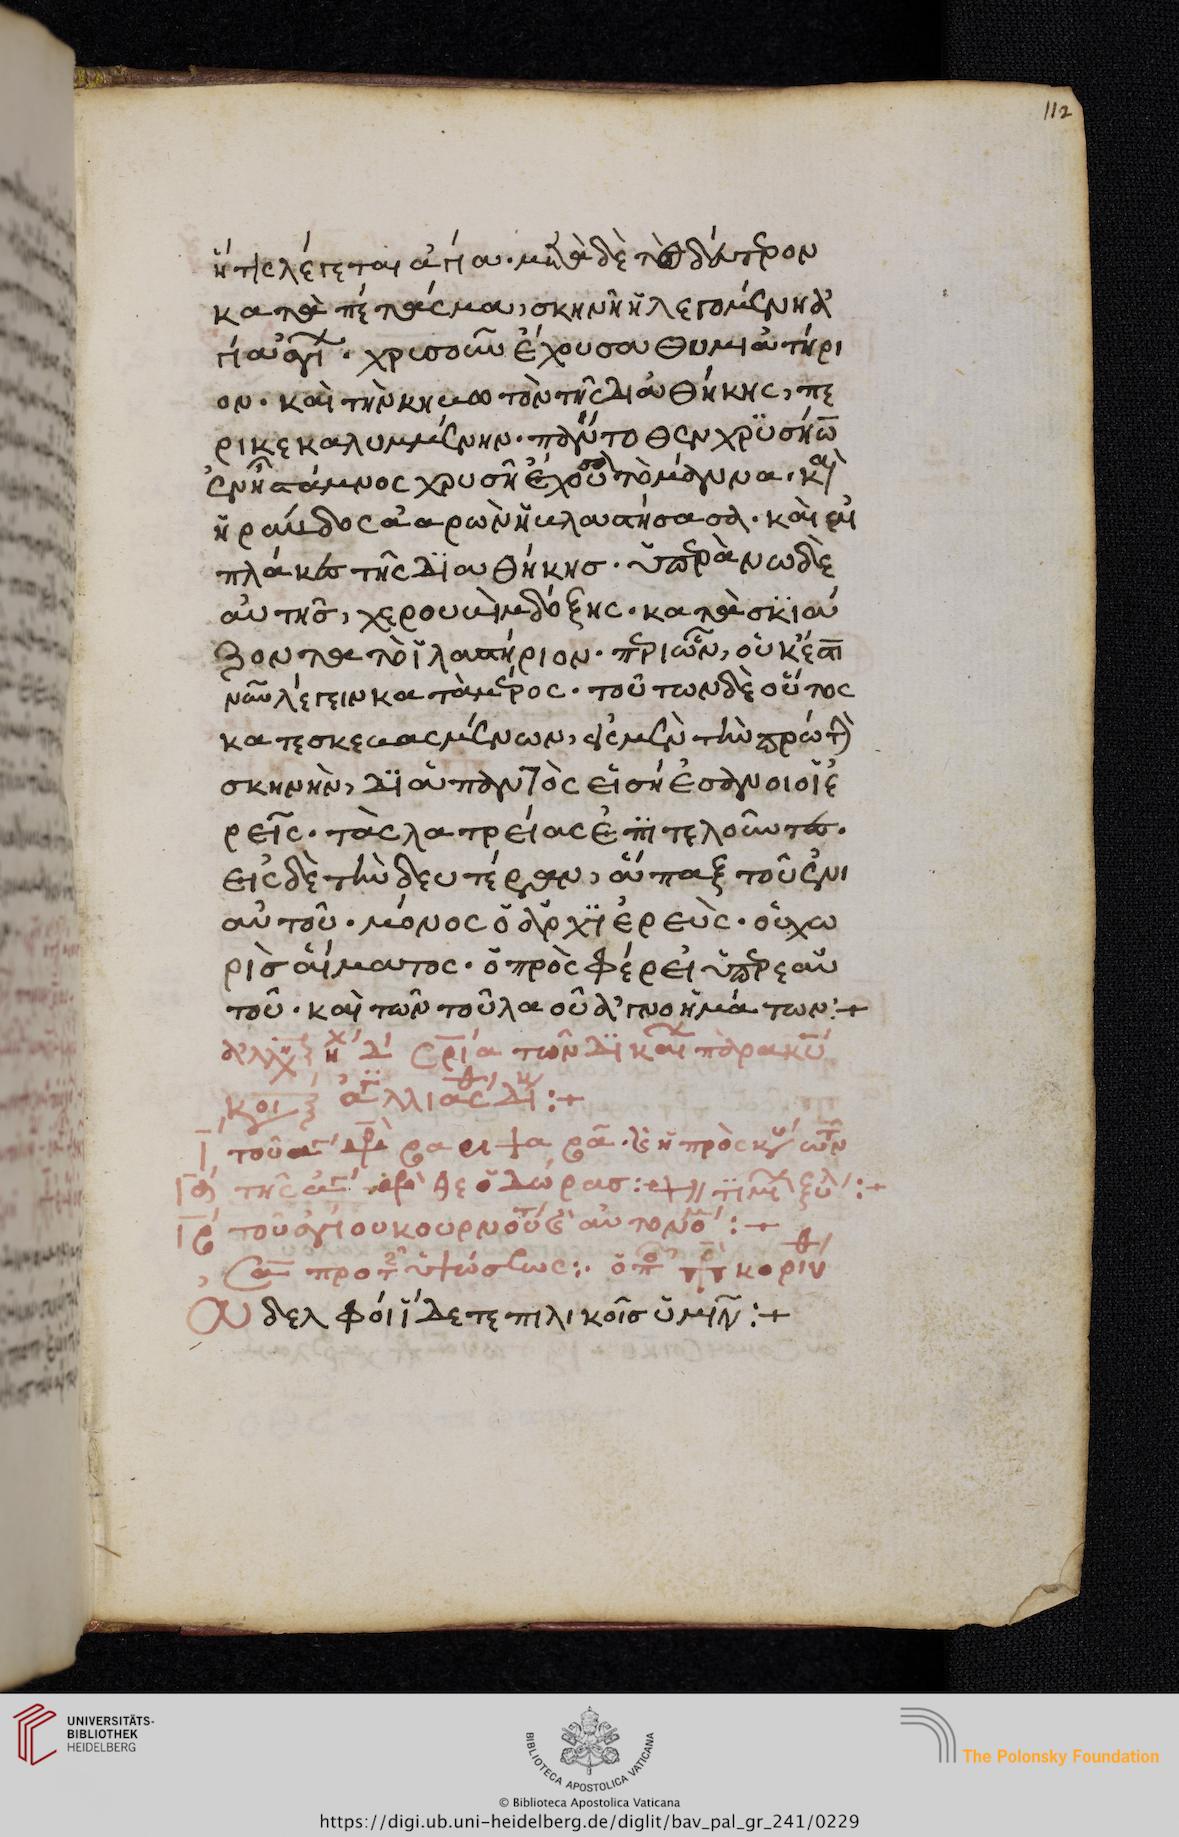 112
ἥτις λέγεται ἁγία· μετὰ δὲ τὸ δεύτερον
καταπέτασμα, σκηνὴ ἡ λεγομένη ἁ
γία ἁγίων· χρυσοῦν ἔχουσα θυμιατήρι
ον· καὶ τὴν κηβωτὸν τῆς διαθήκης, πε
ρικεκαλυμμένην· πάντοθεν χρυσήω
ἐν ἧ στάμνος χρυσῆ ἔχουσα τὸ μάννα· καὶ
ἡ ράβδος ἀαρὼν ἡ βλαστήσασα· καὶ αἱ
πλάκες τῆς διαθήκησ· ὑπεράνω δὲ
αὐτῆσ, χερουβὶμ δόξης· κατασκιά
ζοντα τὸ ἱλαστήριον· περὶ ὧν, οὐκ ἔστι
νῦν λέγειν κατὰ μέρος· τούτων δὲ οὕτος
κατεσκεβασμένων, εἰς μὲν τὴν πρώτην
σκηνὴν, διἁπαντὸς εἰσήεσαν οἱ ἱε
ρεῖς· τὰς λατρείας ἐπιτελοῦντες·
εἰς δὲ τὴν δευτέραν, ἅπαξ τοῦ ἐνι
αυτοῦ· μόνος ὁ ἀρχιερεὺς· οὐ χω
ρὶσ αἵματος· ὃ προσφέρει ὑπὲρ ἑαυ
τοῦ· καὶ τῶν τοῦ λαοῦ ἀγνοημάτων:+
τοῦ
τῆς
τοῦ ἁγίου κουρνούτου
πρὸ τῆς ὑψώσεως:·
Ἀδελφοὶ ἴδετε πιλίκοισ ὑμῖν:+
UNIVERSITÄTS-
BIBLIOTHEK
HEIDELBERG
BIBLIOTECA APOSTOLICA VATICANA
The Polonsky Foundation
© Biblioteca Apostolica Vaticana
https://digi.ub.uni-heidelberg.de/diglit/bav_pal_gr_241/0229